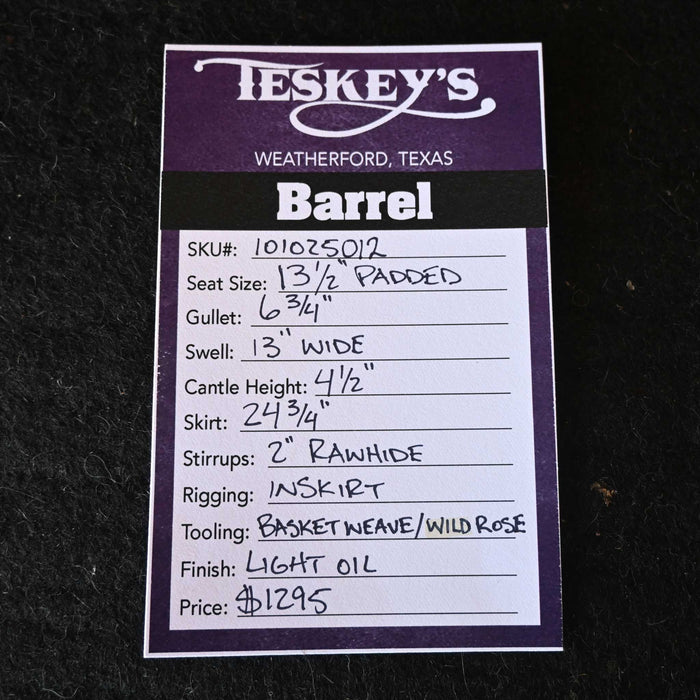 TESKEY'S
WEATHERFORD, TEXAS
Barrel
SKU#: 101025012
Seat Size: 13 1/2" PADDED
Gullet: 6 3/4"
Swell: 13" WIDE
Cantle Height: 4 1/2"
Skirt: 24 3/4"
Stirrups: 2" RAWHIDE
Rigging: INSKIRT
Tooling: BASKET WEAVE/WILD ROSE
Finish: LIGHT OIL
Price: $1295